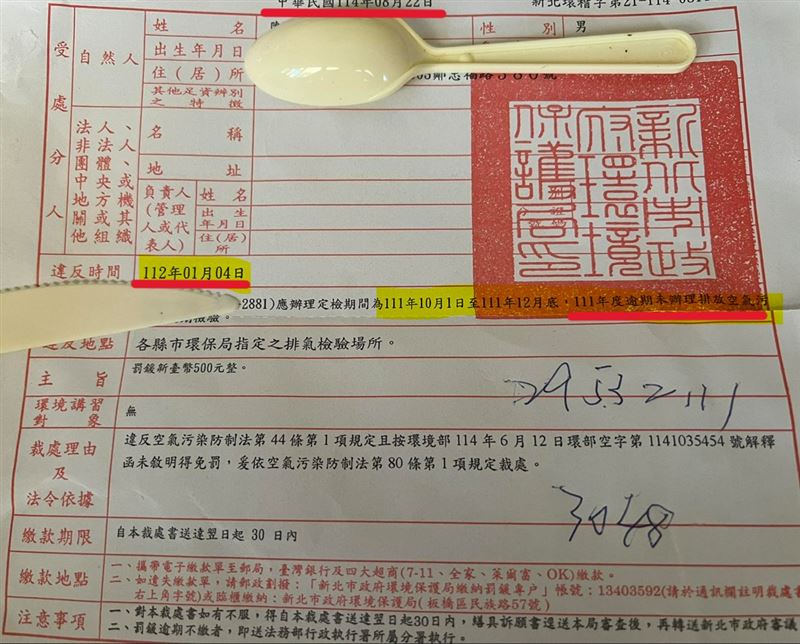 中華民國114年08月22日
新北環稽字第21-114-
受處分人
自然人
姓名
性別 男
出生年月日
住(居)所
其他足資辨別之特徵
法人、非法人團體、中央或地方機關或其他組織
名稱
地址
負責人(管理人或代表人)
姓名
出生年月日
住(居)所
新北市政府環境保護局印
違反時間 112年01月04日
2881)應辦理定檢期間為111年10月1日至111年12月底，111年度逾期未辦理排放空氣污
檢驗。
違反地點 各縣市環保局指定之排氣檢驗場所。
主旨 罰鍰新臺幣500元整。
環境講習對象 無
裁處理由及法令依據
違反空氣污染防制法第44條第1項規定且按環境部114年6月12日環部空字第1141035454號解釋
函未敘明得免罰，爰依空氣污染防制法第80條第1項規定裁處。
29532111
3048
繳款期限 自本裁處書送達翌日起 30 日內
繳款地點
一、攜帶電子繳款單至郵局，臺灣銀行及四大超商(7-11、全家、萊爾富、OK)繳款。
二、如遺失繳款單，請郵政劃撥：「新北市政府環境保護局繳納罰鍰專戶」帳號：13403592(請於通訊欄註明裁處書
右上角字號)或臨櫃繳納：新北市政府環境保護局(板橋區民族路57號)
注意事項
一、對本裁處書如有不服，得自本裁處書送達翌日起30日內，繕具訴願書逕送本局審查後，再轉送新北市政府審議
二、罰鍰逾期不繳者，即送法務部行政執行署所屬分署執行。